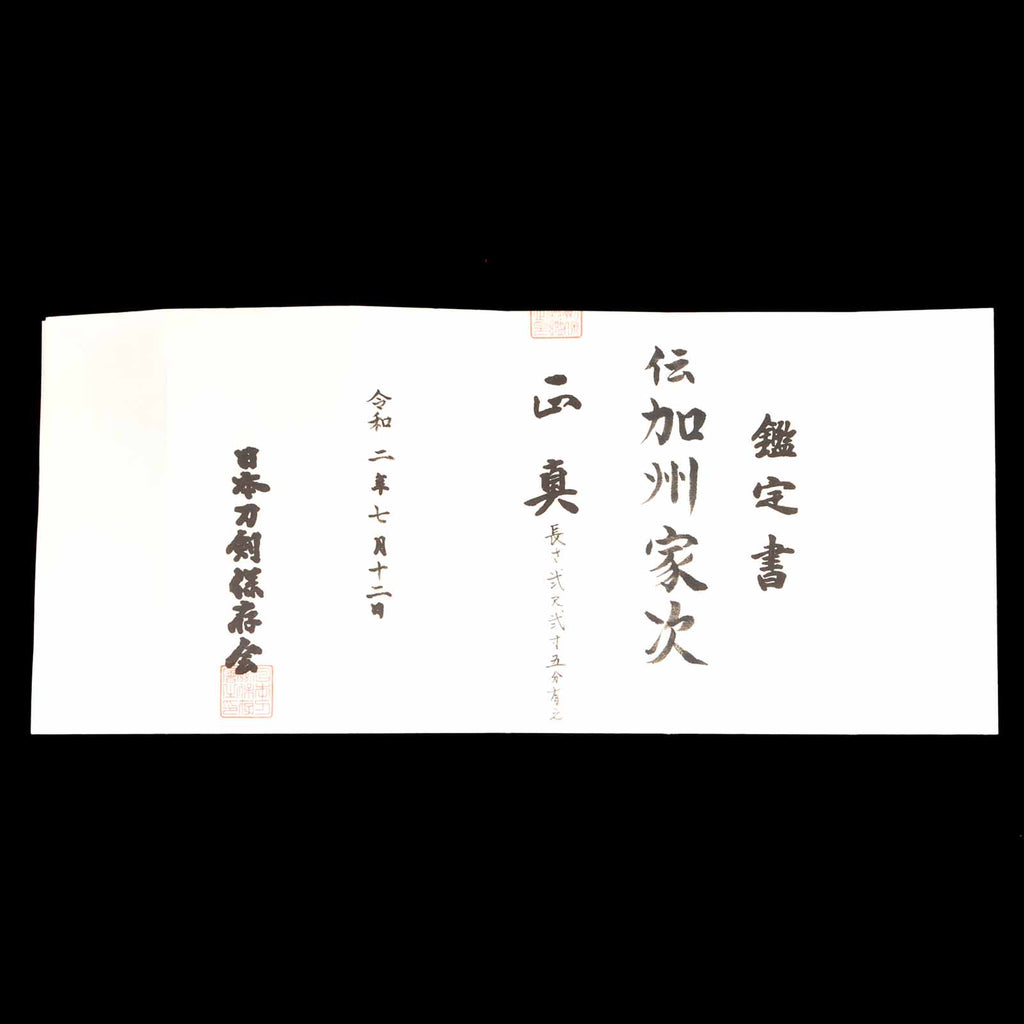 鑑定書
伝加州家次
正真
長さ弐尺弐寸五分有之
令和二年七月十二日
日本刀剣保存会